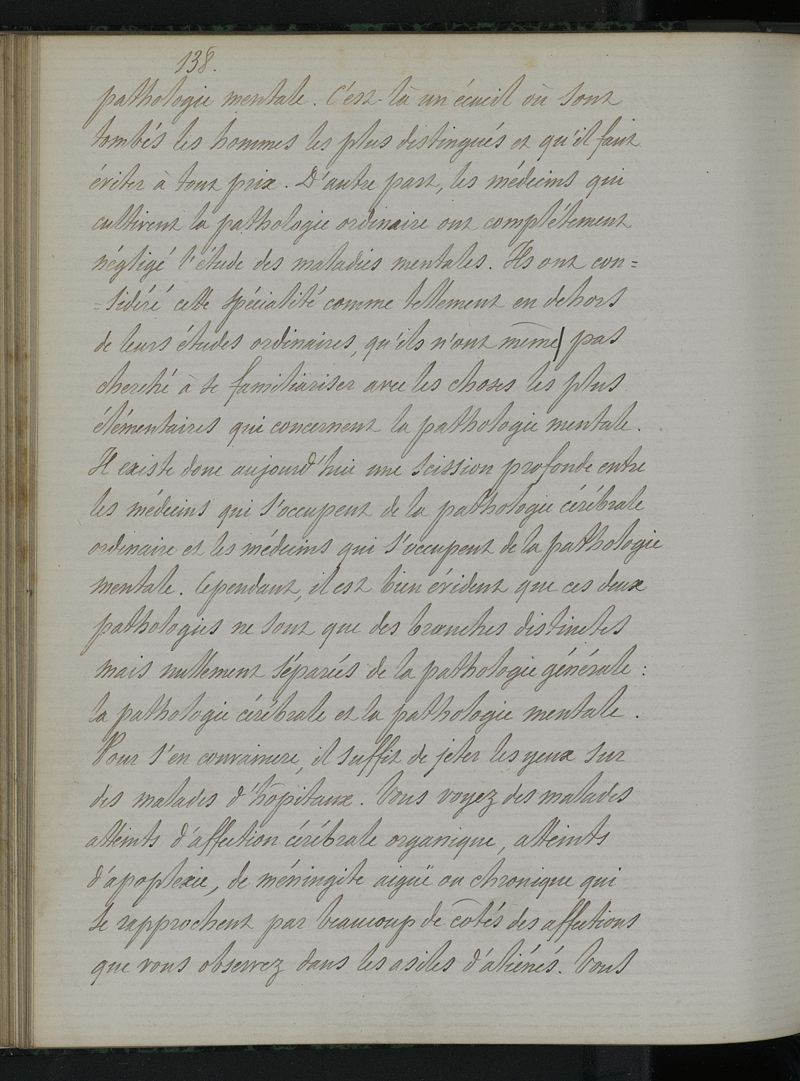 138.
pathologie mentale. C'est là un écueil où sont
tombés les hommes les plus distingués et qu'il faut
éviter à tout prix. D'autre part, les médecins qui
cultivent la pathologie ordinaire ont complétement
négligé l'étude des maladies mentales. Ils ont con=
=sidéré cette spécialité comme tellement en dehors
de leurs études ordinaires, qu'ils n'ont même pas
cherché à se familiariser avec les choses les plus
élémentaires qui concernent la pathologie mentale.
Il existe donc aujourd'hui une scission profonde entre
les médecins qui s'occupent de la pathologie cérébrale
ordinaire et les médecins qui s'occupent de la pathologie
mentale. Cependant, il est bien évident que ces deux
pathologies ne sont que des branches distinctes
mais nullement séparées de la pathologie générale :
la pathologie cérébrale et la pathologie mentale.
Pour s'en convaincre, il suffit de jeter les yeux sur
des malades d'hôpitaux. Vous voyez des malades
atteints d'affection cérébrale organique, atteints
d'apoplexie, de méningite aiguë ou chronique qui
se rapprochent par beaucoup de côtés des affections
que vous observez dans les asiles d'aliénés. Vous